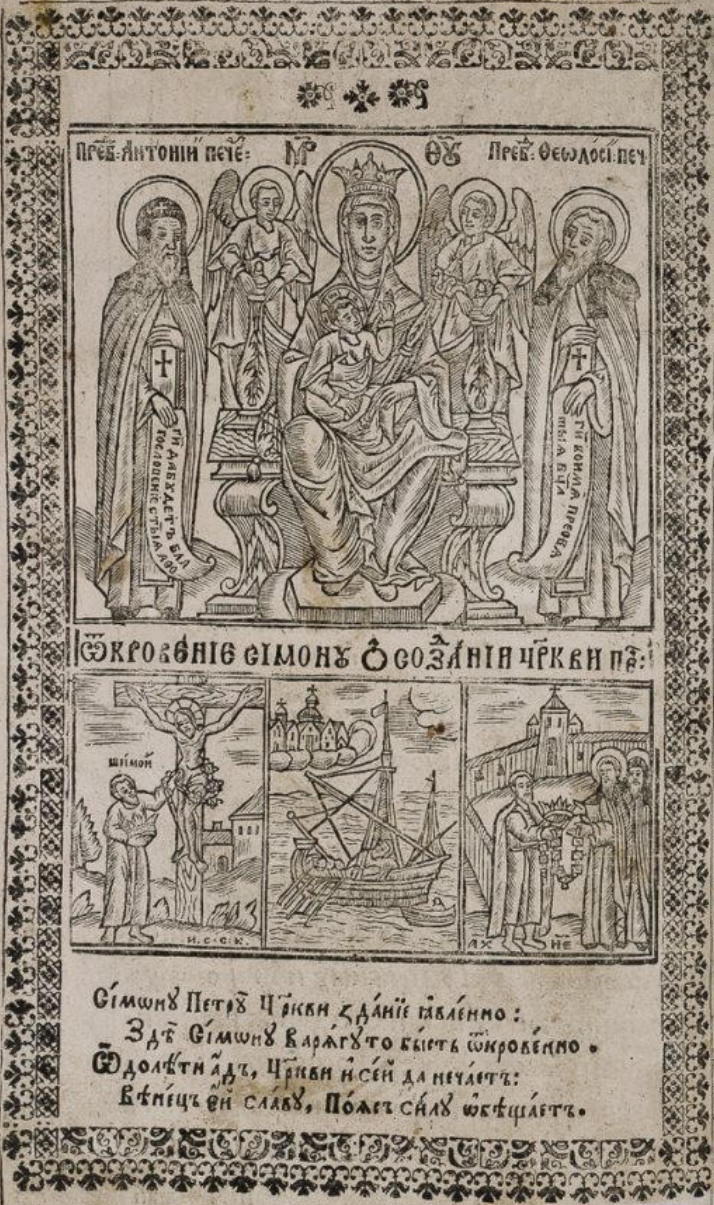 ПРЕⷣБ: АНТОНІЙ ПЕЧЕ:
М҃Р Ѳ҃Ѹ
ПРЕⷣБ: ѲЕѠДОСІ: ПЕЧ
ГИ ДАБУДЕТЪ БЛА
ГОСЛОВЕНІЕ СТЫѦ АѲО
ГИ ВОИМѦ ПРЕСВѦ
ТЫѦ БЦА
Ѿкровéніе Сімонꙋ ѽ созⷣáніи ч҃ркви пⷱ:
ШИМОН
И. С. С. К.
АХ Н҃Е
Сі́мѡнꙋ Петрꙋ̀ Ч҃ркви ꙁда́нїе ꙗвле́нно:
Здѣ̀ Сі́мѡнꙋ Варѧ́гꙋ то бы́сть ѿкрове́нно.
Ѿдолѣ́ти а́дъ, Ч҃ркви и҆ се́й да нечáетъ:
Вѣне́цъ е҆́й сла́вꙋ, По́ѧсъ си́лꙋ ѡ҆бѣща́етъ.